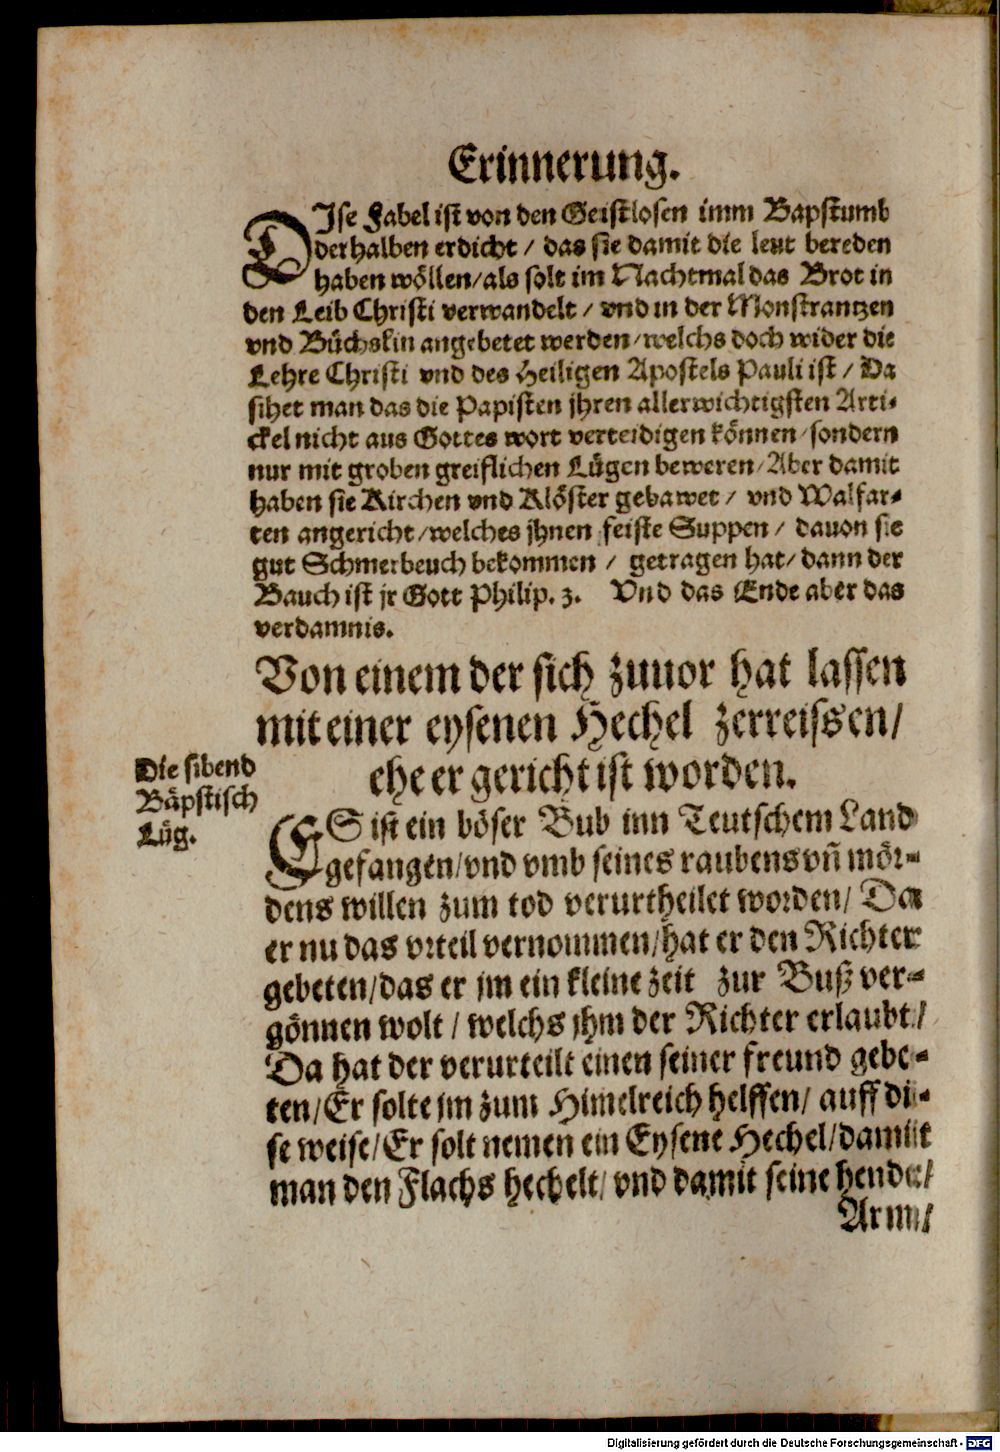 Erinnerung.
DIse Fabel ist von den Geistlosen imm Bapstumb
derhalben erdicht / das sie damit die leut bereden
haben wöllen/als solt im Nachtmal das Brot in
den Leib Christi verwandelt / vnd in der Monstrantzen
vnd Büchslin angebetet werden/welchs doch wider die
Lehre Christi vnd des Heiligen Apostels Pauli ist / Da
sihet man das die Papisten jhren allerwichtigsten Arti-
ckel nicht aus Gottes wort verteidigen können/sondern
nur mit groben greiflichen Lügen beweren/Aber damit
haben sie Kirchen vnd Klöster gebawet / vnd Walfar-
ten angericht/welches jhnen feiste Suppen / dauon sie
gut Schmerbeuch bekommen / getragen hat/dann der
Bauch ist jr Gott Philip. 3. Vnd das Ende aber das
verdamnis.
Von einem der sich zuuor hat lassen
mit einer eysenen Hechel zerreissen/
ehe er gericht ist worden.
Die sibend
Bäpstisch
Lüg.
ES ist ein böser Bub inn Teutschem Land
gefangen/vnd vmb seines raubens vñ mör-
dens willen zum tod verurtheilet worden/ Da
er nu das vrteil vernommen/hat er den Richter
gebeten/das er jm ein kleine zeit zur Buß ver-
gönnen wolt / welchs jhm der Richter erlaubt/
Da hat der verurteilt einen seiner freund gebe-
ten/Er solte jm zum Himelreich helffen/ auff di-
se weise/Er solt nemen ein Eysene Hechel/damit
man den Flachs hechelt/ vnd damit seine hende/
Arm/
Digitalisierung gefördert durch die Deutsche Forschungsgemeinschaft - DFG